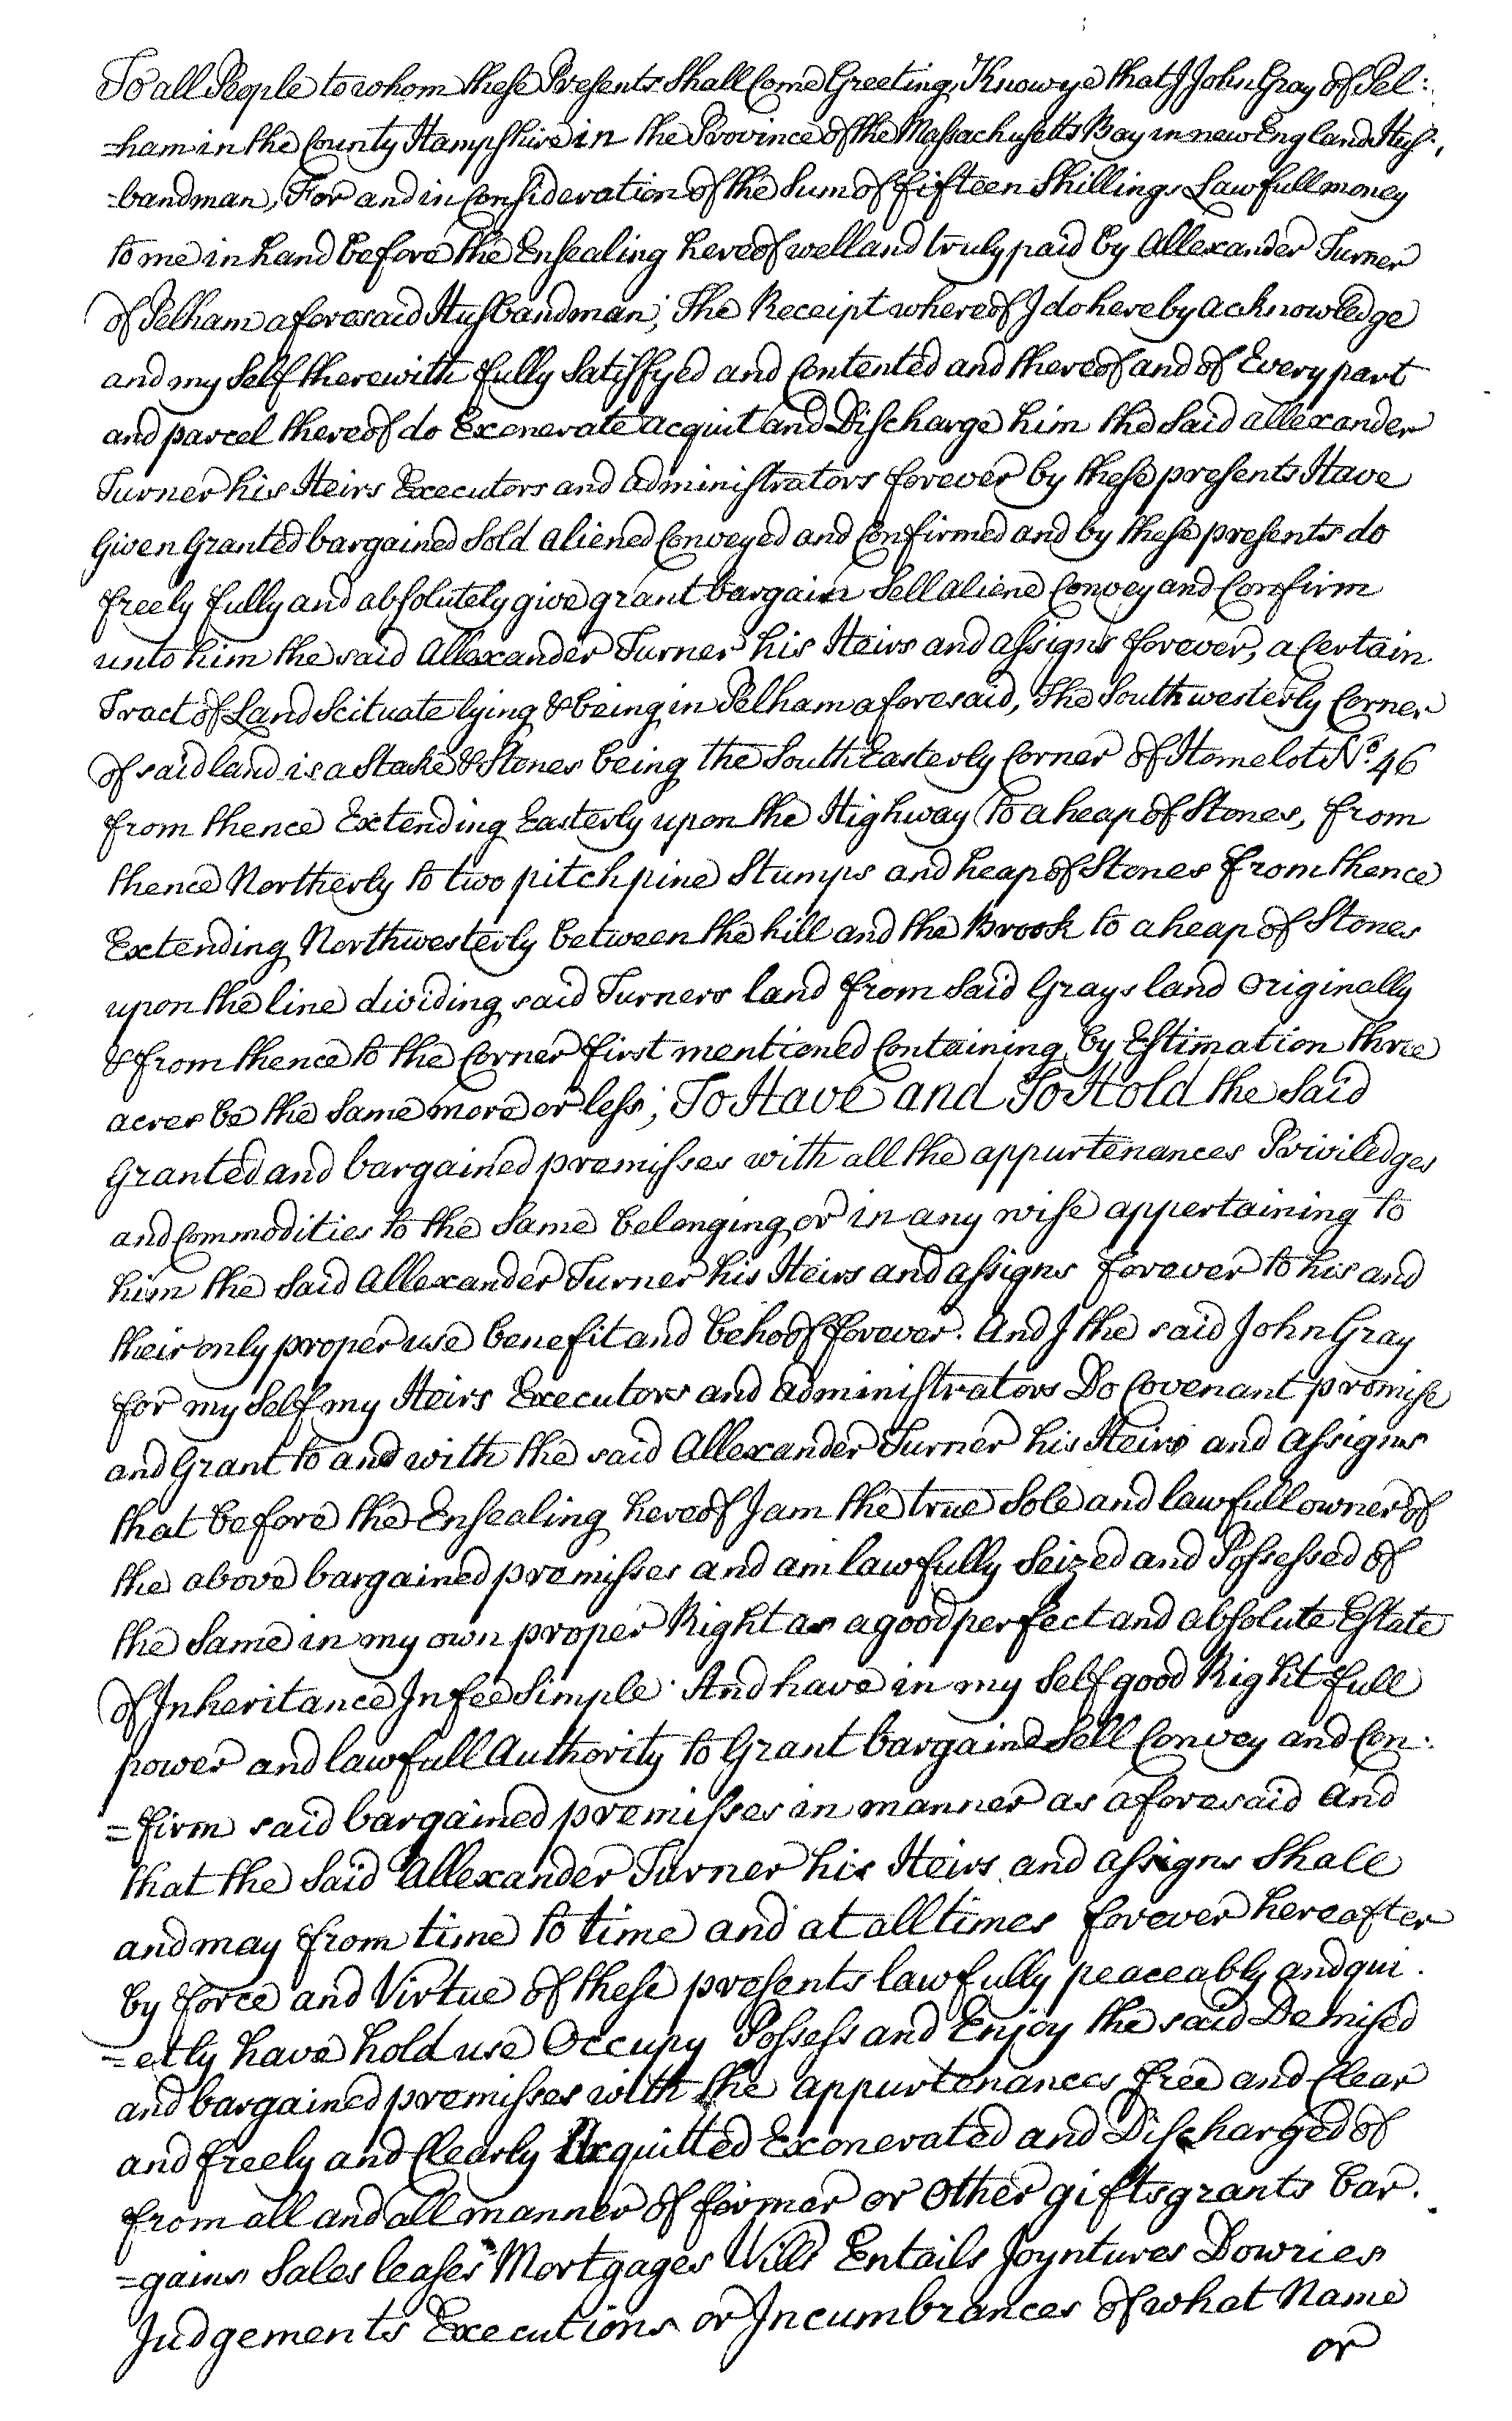 To all People to whom these Presents Shall Come Greeting, Know ye that I John Gray of Pel:
=ham in the County Hampshire in the Province of the Massachusetts Bay in new England Hus:
=bandman, For and in Consideration of the Sum of fifteen Shillings Lawfull money
to me in hand before the Ensealing hereof well and truly paid by Allexander Turner
of Pelham aforesaid Husbandman; The Receipt whereof I do hereby acknowledge
and my Self therewith fully Satisfyed and Contented and thereof and of Every part
and parcel thereof do Exonerate acquit and Discharge him the Said allexander
Turner his Heirs Executors and administrators forever by these presents Have
Given Granted bargained Sold aliened Conveyed and Confirmed and by these presents do
freely fully and absolutely give grant bargain Sell aliene Convey and Confirm
unto him the said Allexander Turner his Heirs and assigns forever, a Certain
Tract of Land Scituate lying & being in Pelham aforesaid, The Southwesterly Corner
of said land is a Stake & Stones being the South Easterly Corner of Homelot No. 46
from thence Extending Easterly upon the Highway to a heap of Stones, from
thence Northerly to two pitch pine Stumps and heap of Stones from thence
Extending Northwesterly between the hill and the Brook to a heap of Stones
upon the line dividing said Turners land from Said Grays land Originally
& from thence to the Corner first mentioned Containing by Estimation three
acres be the Same more or less; To Have and To Hold the Said
Granted and bargained premisses with all the appurtenances Priviledges
and Commodities to the Same belonging or in any wise appertaining to
him the Said Allexander Turner his Heirs and assigns forever to his and
their only proper use benefit and behoof forever. And I the said John Gray
for my Self my Heirs Executors and administrators Do Covenant promise
and Grant to and with the said Allexander Turner his Heirs and assigns
that before the Ensealing hereof I am the true Sole and lawfull owner of
the above bargained premisses and am lawfully Seized and Possessed of
the Same in my own proper Right as a good perfect and absolute Estate
of Inheritance In fee Simple. And have in my Self good Right full
power and lawfull Authority to Grant bargaine Sell Convey and Con:
=firm said bargained premisses in manner as aforesaid And
that the Said Allexander Turner his Heirs and assigns Shall
and may from time to time and at all times forever hereafter
by force and Virtue of these presents lawfully peaceably and qui.
=etly have hold use Occupy Possess and Enjoy the said Demised
and bargained premisses with the appurtenances free and Clear
and freely and Clearly Acquitted Exonerated and Discharged of
from all and all manner of former or Other gifts grants bar.
=gains Sales leases Mortgages Wills Entails Joyntures Dowries
Judgements Executions or Incumbrances of what Name
or